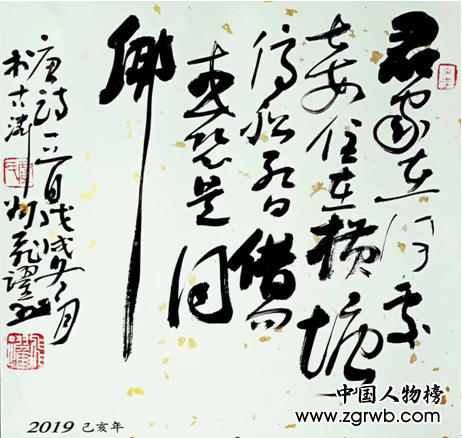 君家在何處
妾住在横塘
停船暫借問
或恐是同
鄉
唐詩一首戊戌冬月
2019 己亥年
中国人物榜
www.zgrwb.com